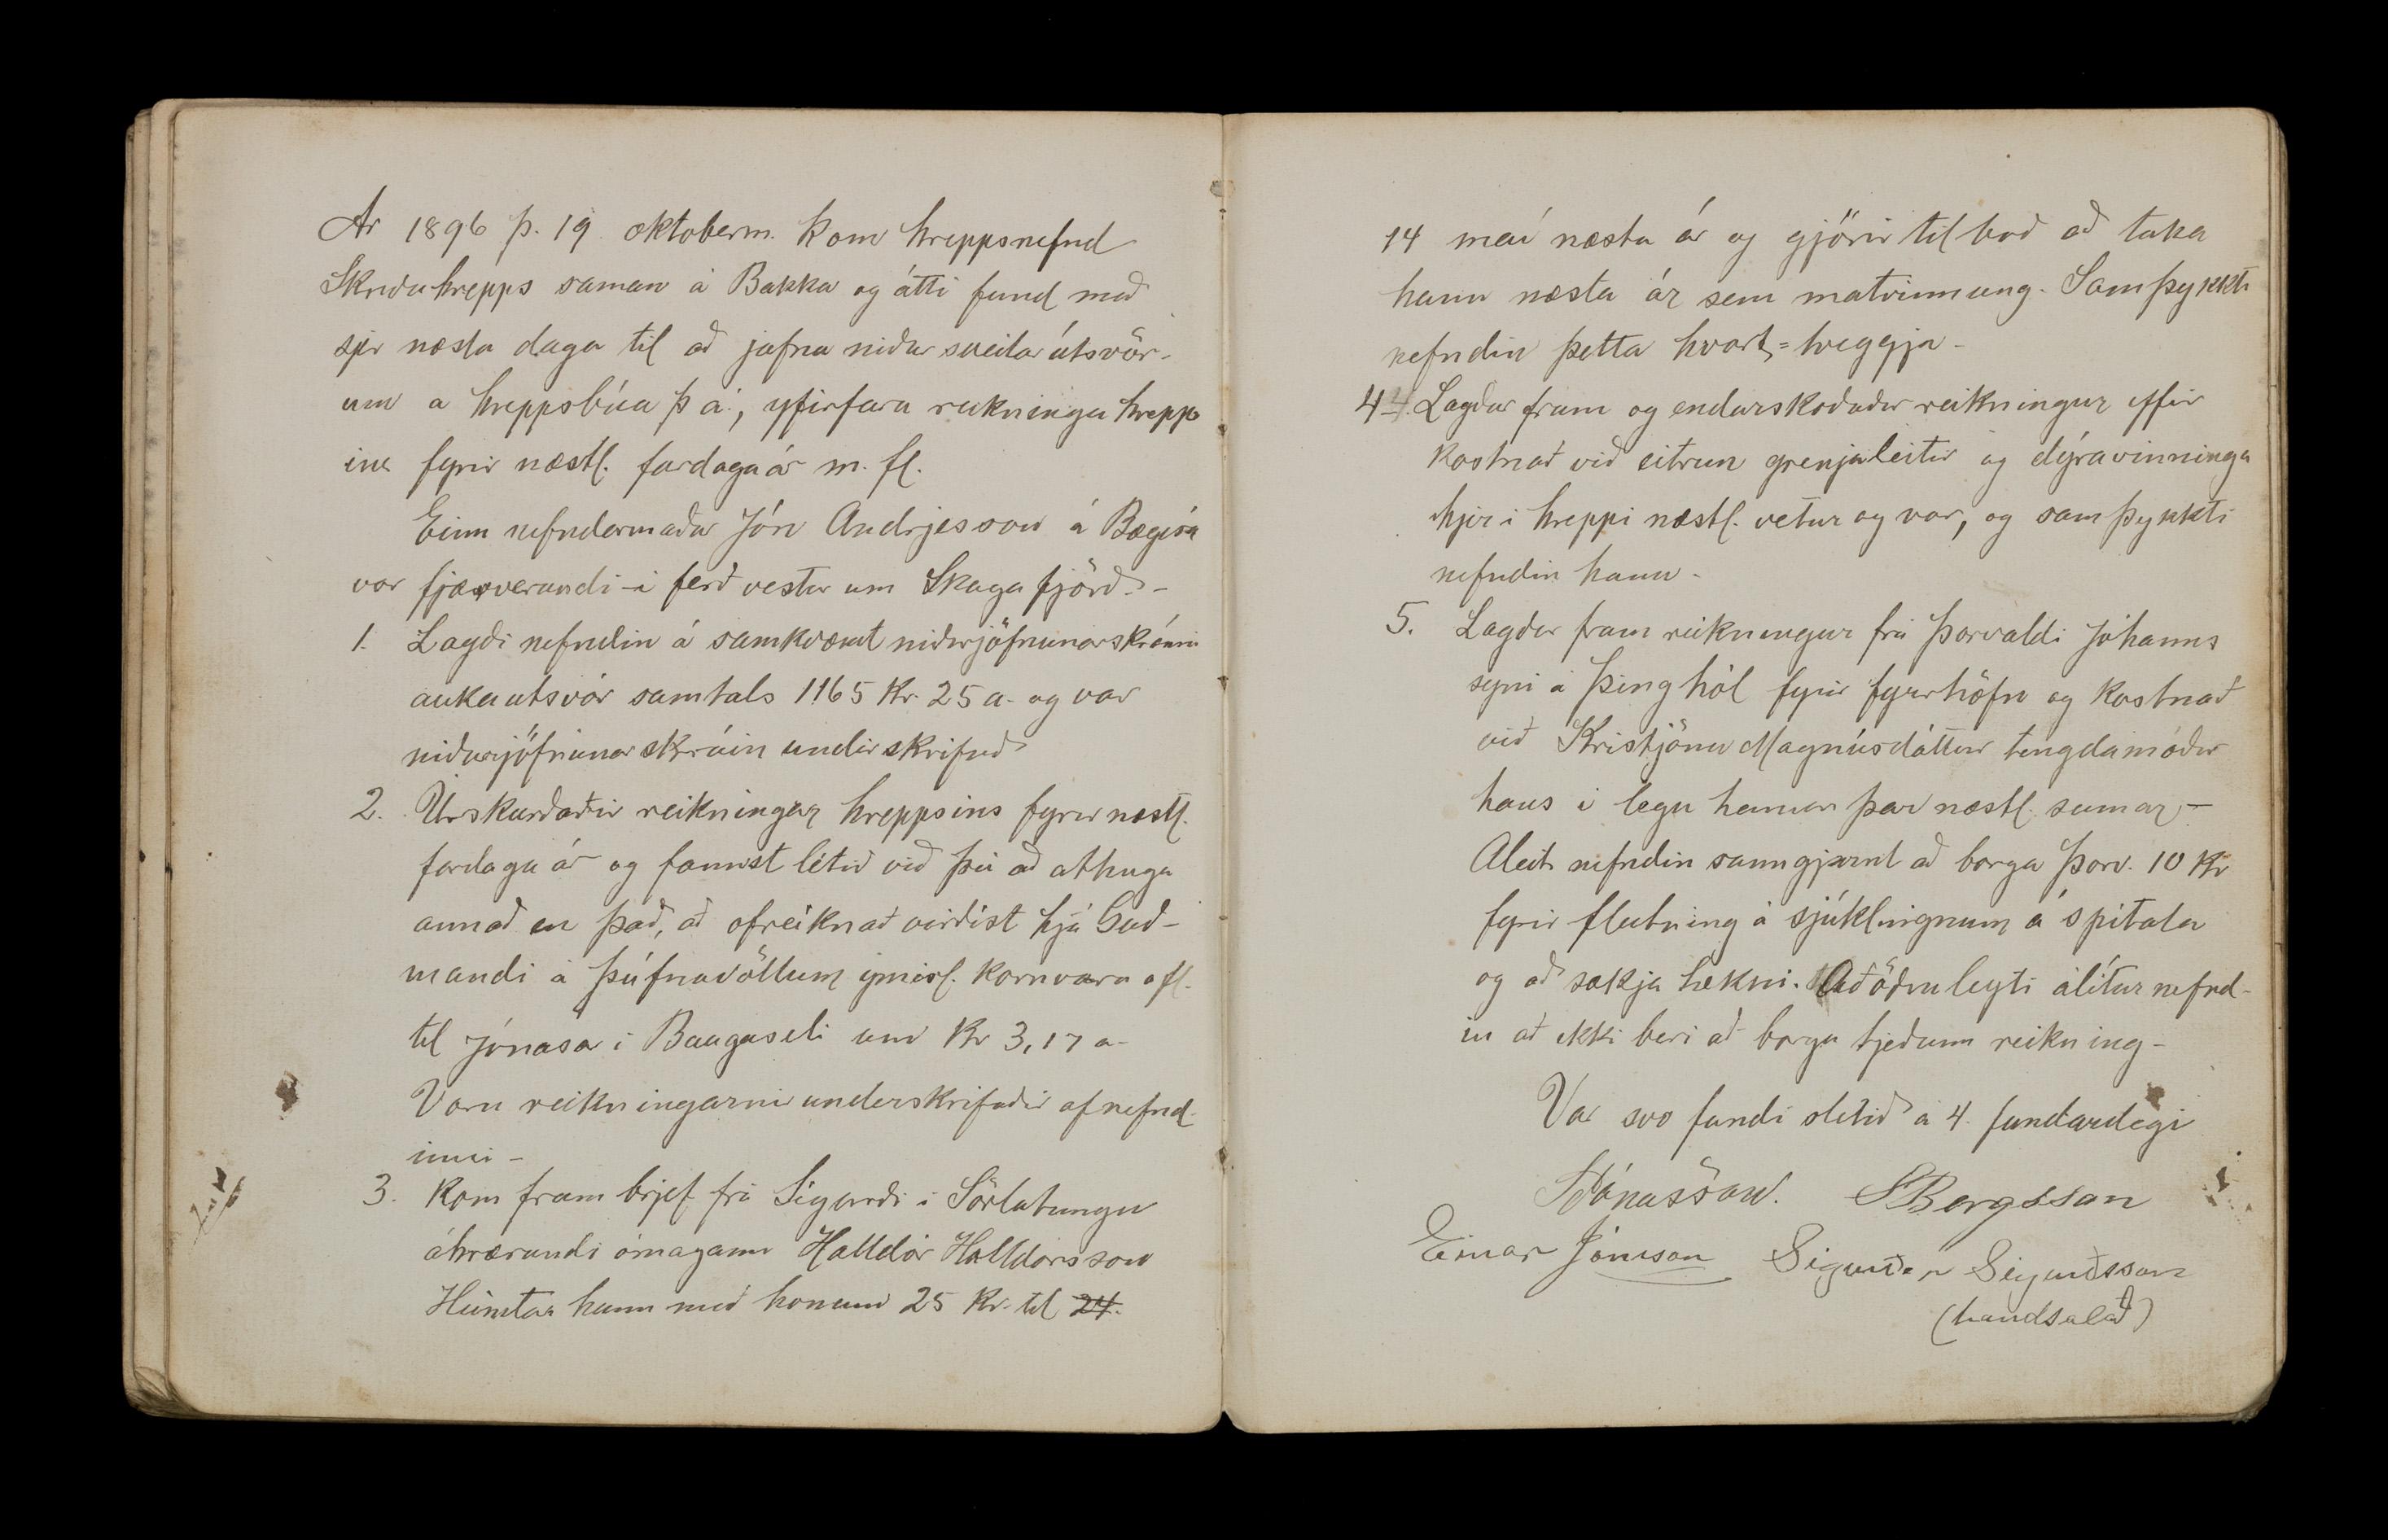 Ár 1896 þ. 19 oktoberm. kom hreppsnefnd
Skriðuhrepps saman á Bakka og átti fund með
sjer næstu daga til að jafna niður sveitarútsvör-
um á hreppsbúa þ á., yfirfara reikninga hrepp
ins fyrir næstl. fardagaár m. fl.
Einn nefndarmaður Jón Andrjesson á Bægisá
var fjærverandi í ferð vestur um Skagafjörð. -
1. Lagði nefndin á samkvæmt niðurjöfnunarskránni
aukautsvör samtals 1165 Kr 25 a. og var
niðurjöfnunarskráin undirskrifuð
2. Úrskurðaðir reikningar hreppsins fyrir næstl.
fardaga ár og fannst lítið við þá að athuga
annað en það, að ofreiknað virðist hjá Guð-
mundi á Þúfnavöllum ýmisl. kornvara ofl.
til Jónasar í Baugaseli um Kr 3,17 a-
Voru reikningarnir undirskrifaðir af nefnd-
inni -
3. Kom fram brjef frá Sigurði í Sörlatungu
áhrærandi ómagann Halldór Halldórsson
Heimtar hann með honum 25 Kr. til 24.
14 maí næsta ár og gjörir tilboð að taka
hann næsta ár sem matvinnung. Samþykkti
nefndin þetta hvort=tveggja -
4. Lagður fram og endurskoðaður reikningur yfir
kostnað við eitrun grenjaleitir og dýravinninga
hjer í hreppi næstl. vetur og vor, og samþykkti
nefndin hann -
5. Lagður fram reikningur frá Þorvaldi Jóhanns
syni á Þinghól fyrir fyrirhöfn og kostnað
við Kristjönu Magnúsdóttur tengdamóður
hans í legu hennar þar næstl. sumar, -
Áleit nefndin sanngjarnt að borga Þorv. 10 Kr
fyrir flutning á sjúklingnum á spítala
og að sækja lækni. Að öðru leyti álítur nefnd-
in að ekki beri að borga tjeðann reikning -
Var svo fundi slitið á 4. fundardegi
Jónasson. SBergsson
Einar Jónsson Sigurður Sigurðsson
(handsalað)